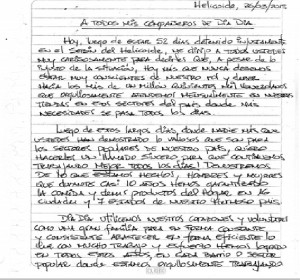 Helicoide, 26/03/2015
A TODOS MIS COMPAÑEROS DE DÍA DÍA
Hoy, luego de estar 52 días detenido injustamente
en el Sebin del Helicoide, me dirijo a todos ustedes
muy cariñosamente para decirles que, a pesar de lo
de la situación, hoy más que nunca debemos
estar muy conscientes de nuestro rol y deber
hacia los más de un millón quinientos mil venezolanos
que orgullosamente atendemos mensualmente en nuestras
tiendas en esos sectores del país donde más
necesidades se pasa todos los días.
Luego de estos largos días, donde nadie más que
ustedes han demostrado lo valiosos que son para
los sectores populares de nuestro país, quiero
hacerles un llamado sincero para que continuemos
trabajando mejor todos los días! Demostremos
de lo que estamos hechos, hombres y mujeres
que durante casi 10 años hemos garantizado
la comida y demás productos del hogar en
ciudades y 7 estados de nuestro hermoso país.
Día Día utilicemos nuestros corazones y voluntades
como una gran familia para de forma constante
y consistente abastecer en forma eficiente lo
que con mucho trabajo y esfuerzo hemos logrado
en todos estos años en cada barrio o sector
popular donde estamos orgullosamente trabajando